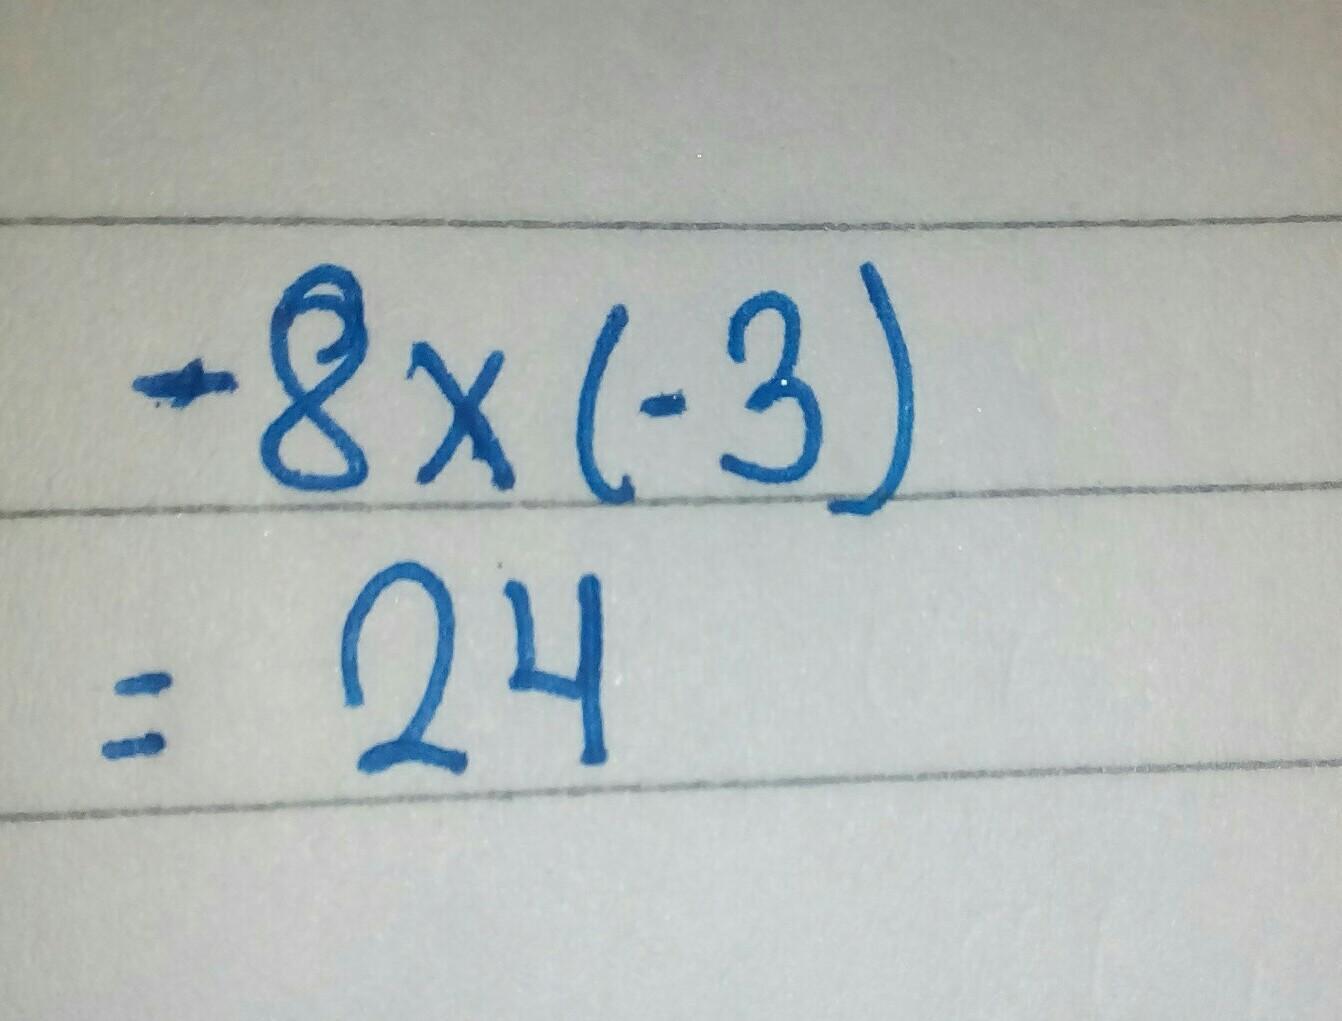 -8x(-3)
= 24